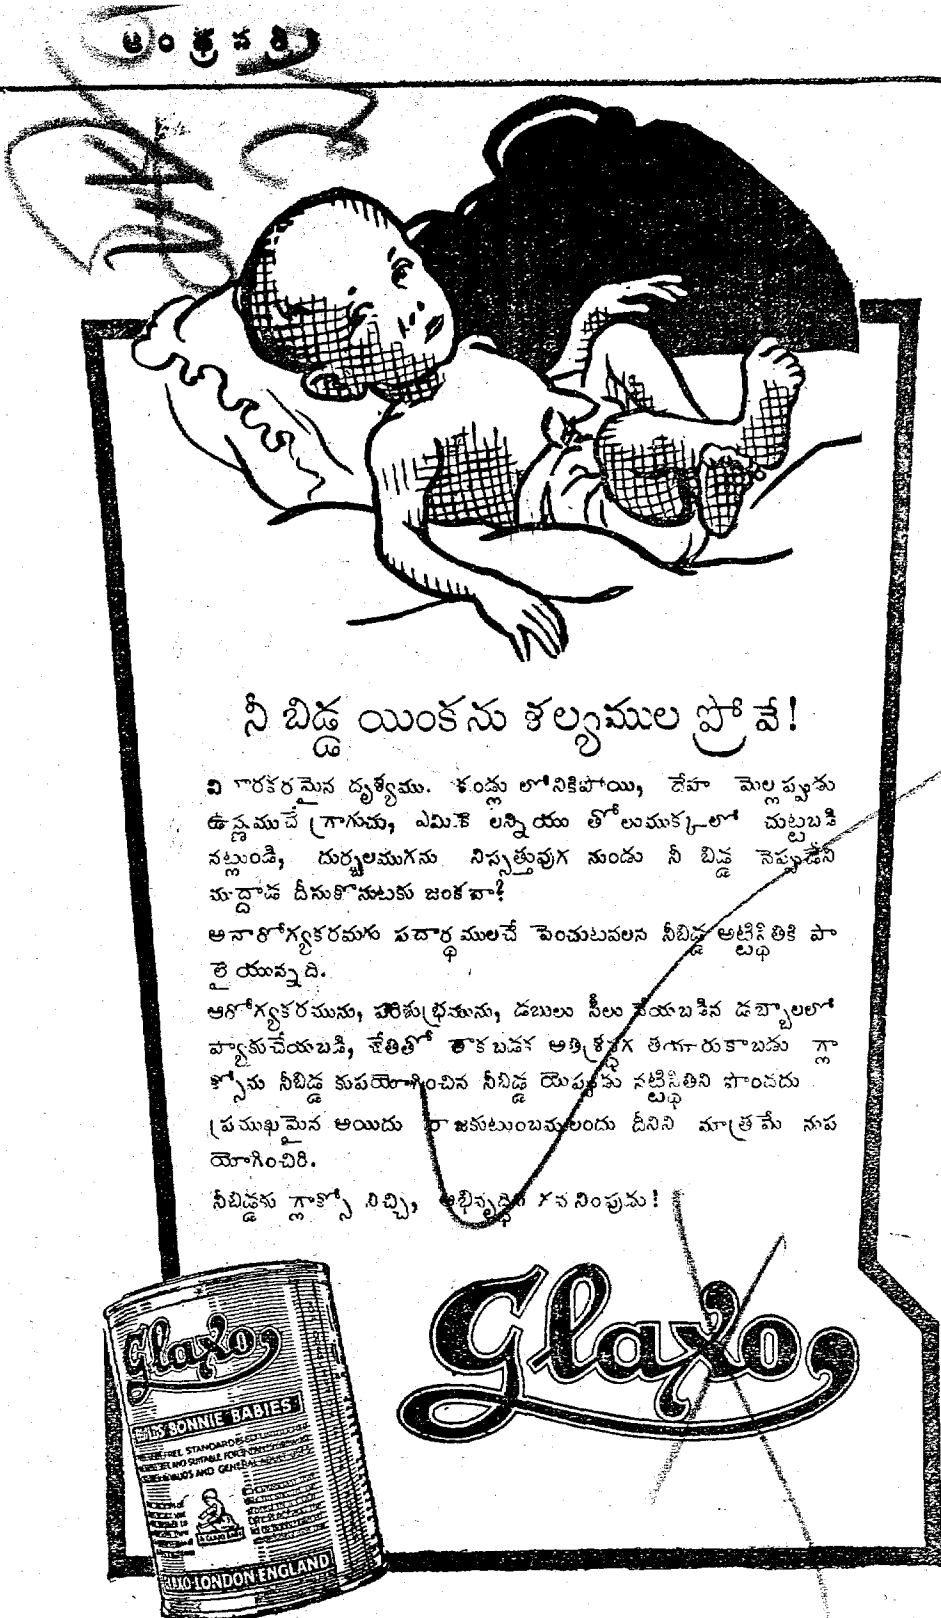 ఆంధ్రపత్రి
నీ బిడ్డ యింకను శల్యముల ప్రోవే!
వి కారకరమైన దృశ్యము. కండ్లు లోనికిపోయి, దేహ మెల్లప్పుడు
ఉష్ణముచే గ్రాగుచు, ఎమిక లన్నియు తోలుముక్కలో చుట్టబడి
నట్లుండి, దుర్బలముగను నిస్సత్తువుగ నుండు నీ బిడ్డ నెప్పుడేని
ముద్దాడ దీసుకొనుటకు జంకవా?
అనారోగ్యకరమగు పదార్థములచే పెంచుటవలన నీబిడ్డ అట్టిస్థితికి పా
లై యున్నది.
ఆరోగ్యకరమును, పరిశుభ్రమును, డబులు సీలు చేయబడిన డబ్బాలలో
ప్యాకుచేయబడి, చేతితో తాకబడక అతిశ్రద్ధగ తయారుకాబడు గ్లా
క్సోను నీబిడ్డ కుపయోగించిన నీబిడ్డ యెప్పుడు నట్టిస్థితిని పొందదు
ప్రముఖమైన అయిదు రాజకుటుంబములందు దీనిని మాత్రమే నుప
యోగించిరి.
నీబిడ్డకు గ్లాక్సో నిచ్చి, అభివృద్ధిని గమనింపుడు!
Glaxo
Glaxo
BUILDS BONNIE BABIES
FREE STANDARDISED
AND SUITABLE FOR
INVALIDS AND GENERAL
GLAXO·LONDON ENGLAND